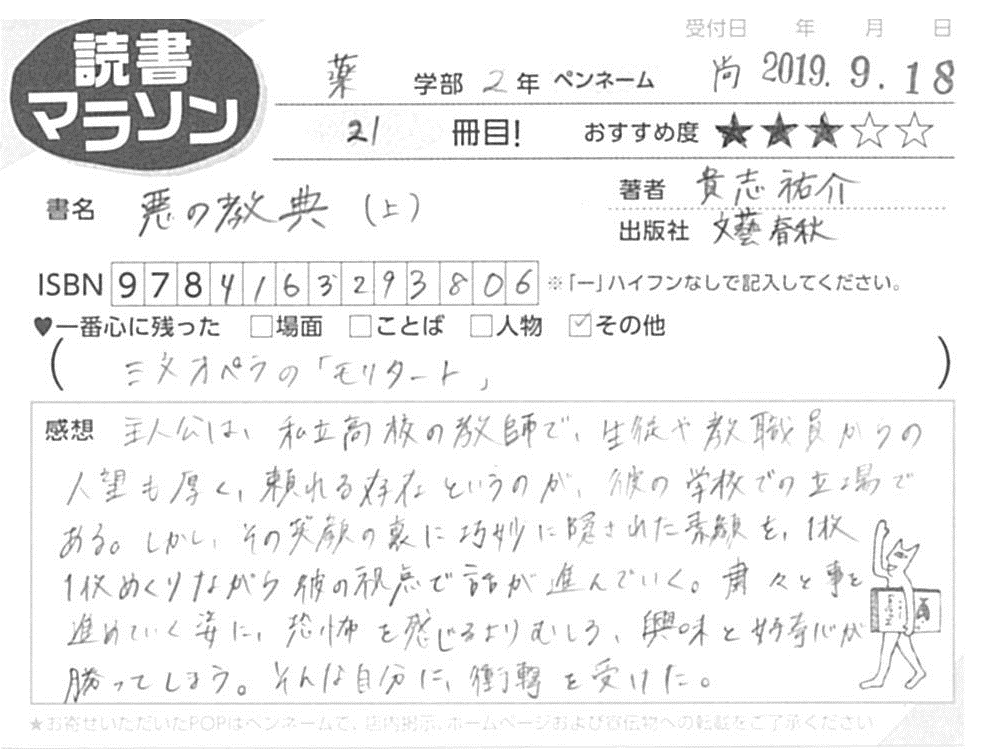 受付日 年 月 日
読書
マラソン
薬 学部 2 年 ペンネーム 尚 2019. 9. 18
21 冊目! おすすめ度 ★★★☆☆
書名 悪の教典(上)
著者 貴志祐介
出版社 文藝春秋
ISBN 9784163293806 ※「ー」ハイフンなしで記入してください。
♥一番心に残った □場面 □ことば □人物 ☑その他
(三文オペラの「モリタート」)
感想 主人公は、私立高校の教師で、生徒や教職員からの
人望も厚く、頼れる存在というのが、彼の学校での立場で
ある。しかし、その笑顔の裏に巧妙に隠された素顔を、1枚
1枚めくりながら彼の視点で話が進んでいく。粛々と事を
進めていく姿に、恐怖を感じるよりむしろ、興味と好奇心が
勝ってしまう。そんな自分に、衝撃を受けた。
★お寄せいただいたPOPはペンネームで、店内掲示、ホームページおよび宣伝物への転載をご了承ください